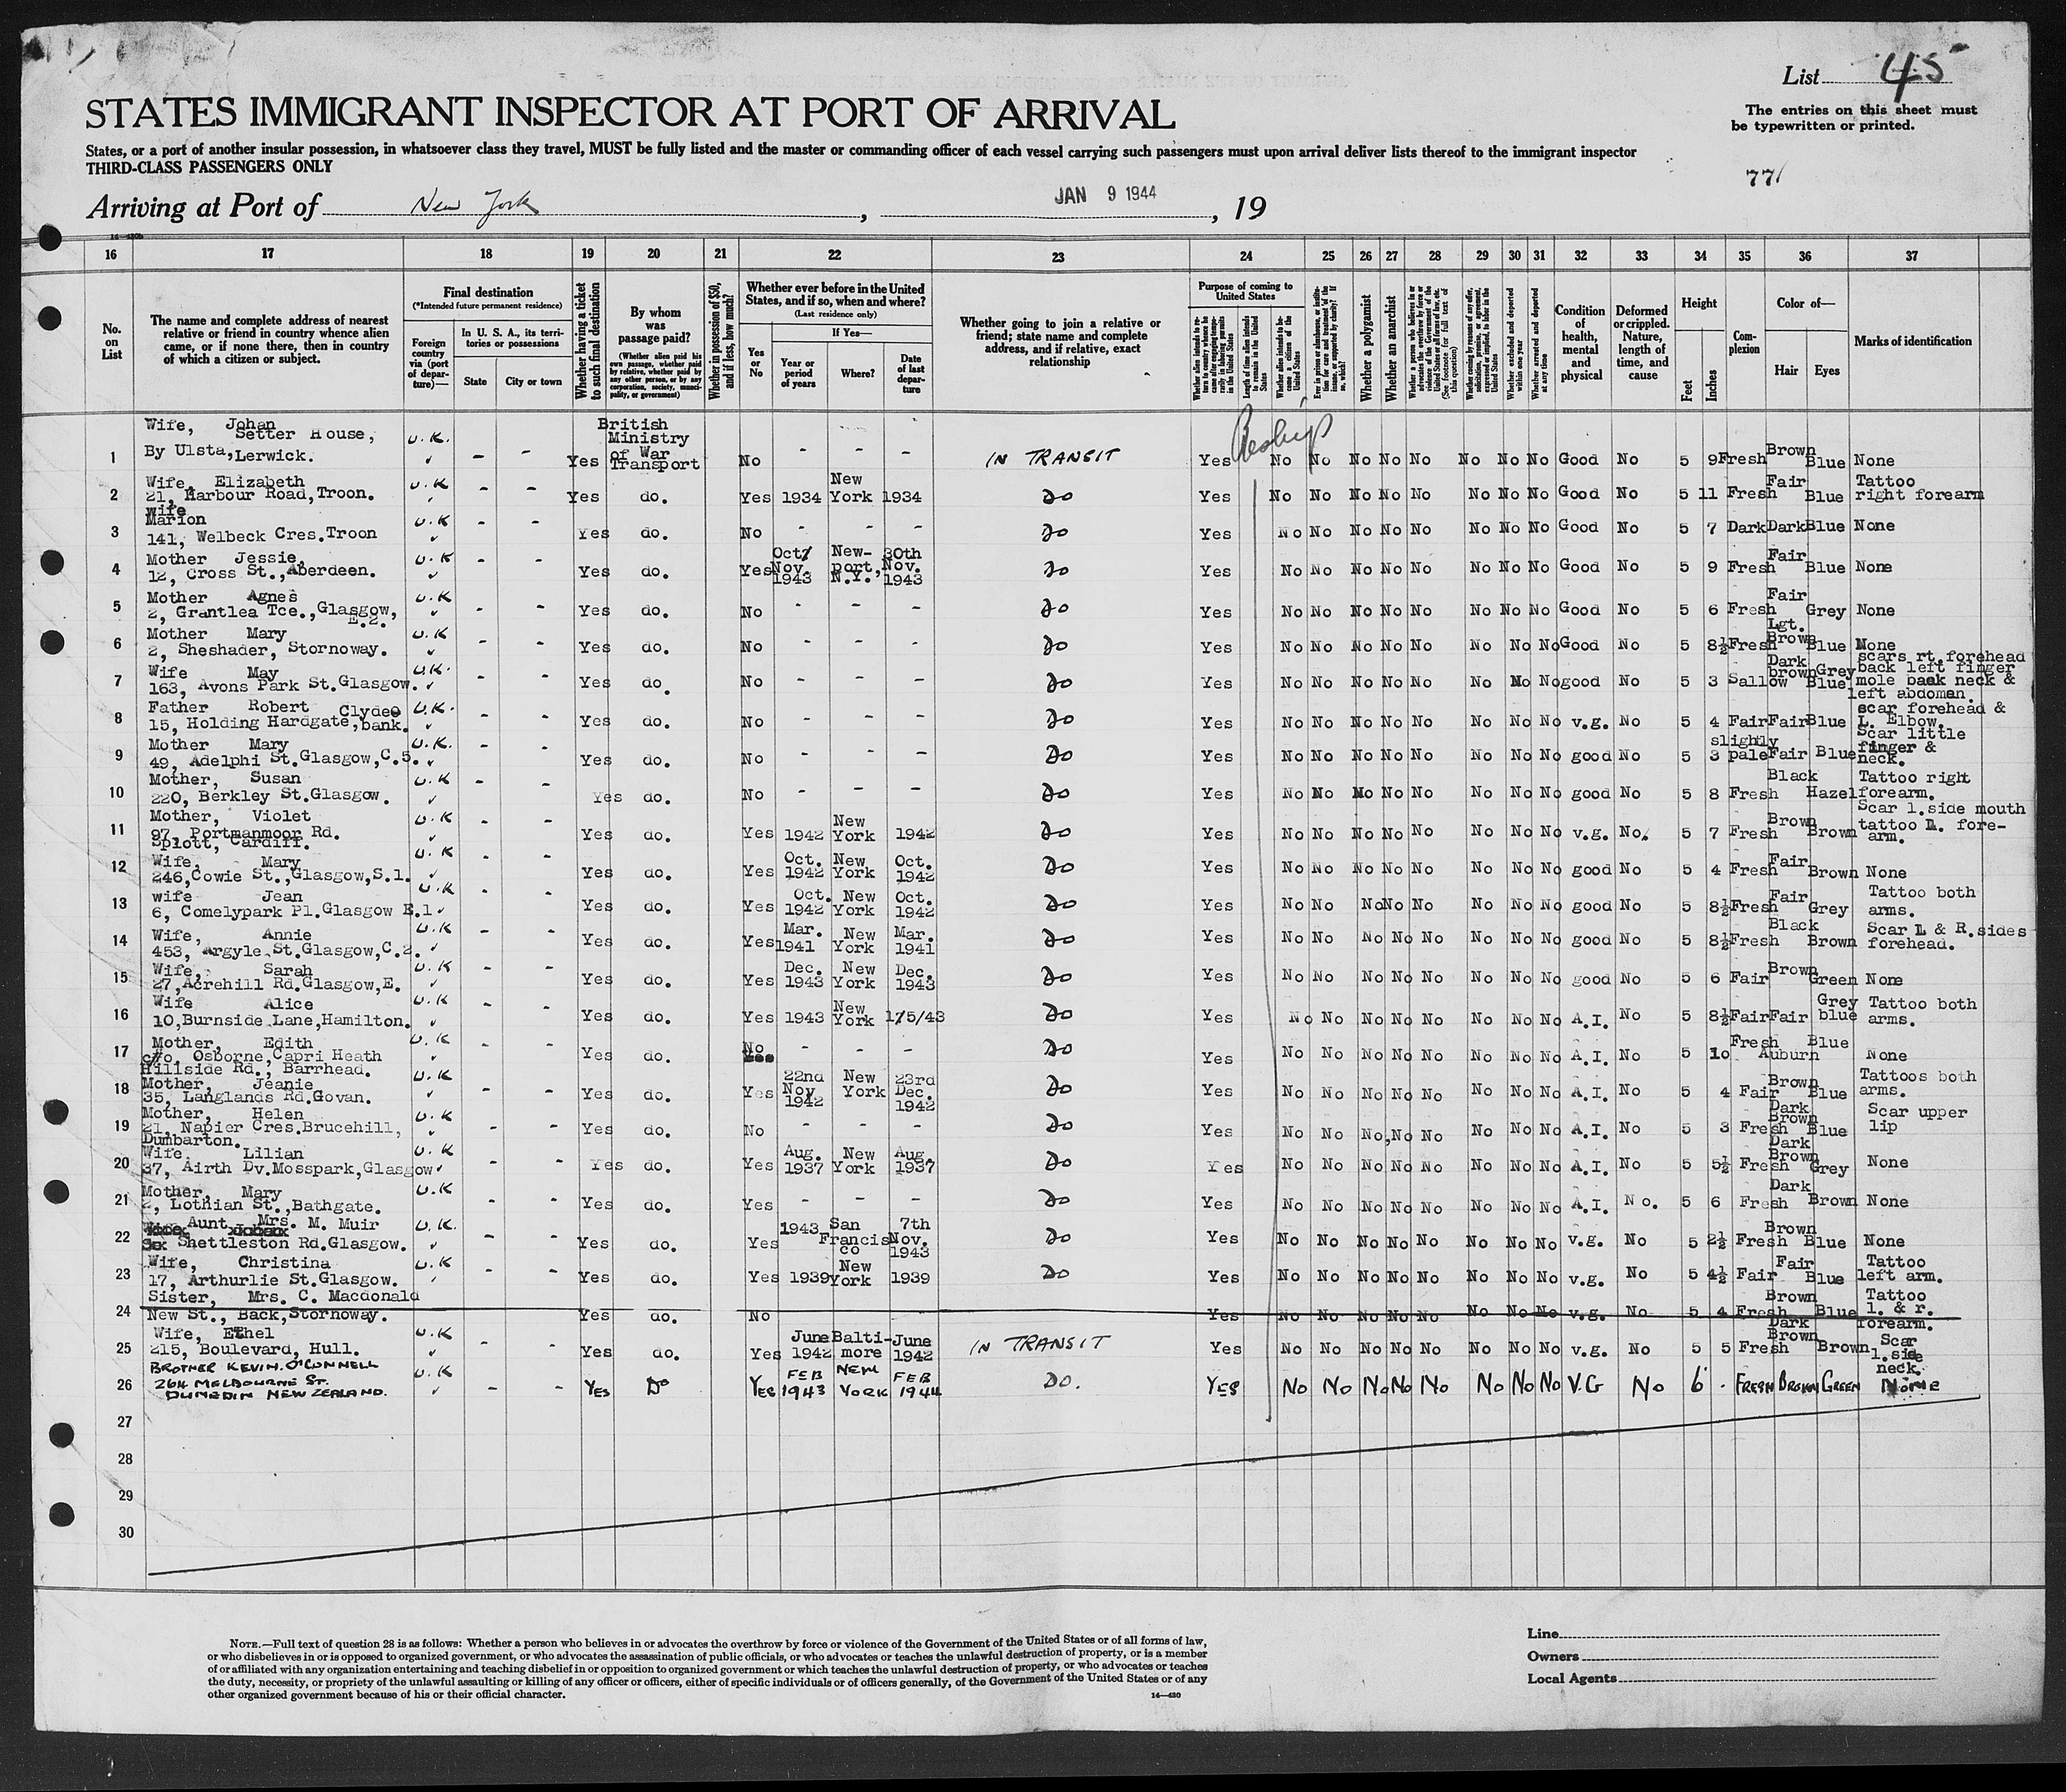 List 45
STATES IMMIGRANT INSPECTOR AT PORT OF ARRIVAL
The entries on this sheet must
be typewritten or printed.
States, or a port of another insular possession, in whatsoever class they travel, MUST be fully listed and the master or commanding officer of each vessel carrying such passengers must upon arrival deliver lists thereof to the immigrant inspector
THIRD-CLASS PASSENGERS ONLY
771
Arriving at Port of New York, JAN 9 1944, 19
16 17 18 19 20 21 22 23 24 25 26 27 28 29 30 31 32 33 34 35 36 37
No. on List
The name and complete address of nearest relative or friend in country whence alien came, or if none there, then in country of which a citizen or subject.
Final destination
(*Intended future permanent residence)
Foreign country via (port of departure)—
In U. S. A., its territories or possessions
State
City or town
Whether having a ticket to such final destination
By whom was passage paid?
(Whether alien paid his own passage, whether paid by relative, whether paid by any other person, or by any corporation, society, municipality, or government)
Whether in possession of $50, and if less, how much?
Whether ever before in the United States, and if so, when and where?
(Last residence only)
If Yes—
Yes or No
Year or period of years
Where?
Date of last departure
Whether going to join a relative or friend; state name and complete address, and if relative, exact relationship
Purpose of coming to United States
Length of time alien intends to remain in the United States
Whether alien intends to become a citizen of the United States
Whether a polygamist
Whether an anarchist
Whether excluded and deported within one year
Whether arrested and deported at any time
Condition of health, mental and physical
Deformed or crippled. Nature, length of time, and cause
Height
Feet
Inches
Complexion
Color of—
Hair
Eyes
Marks of identification
1 Wife, Johan Setter House, By Ulsta, Lerwick. U.K. - - Yes British Ministry of War Transport No - - - IN TRANSIT Yes No No No No No No No No Good No 5 9 Fresh Brown Blue None
2 Wife, Elizabeth 21, Harbour Road, Troon. U.K - - Yes do. Yes 1934 New York 1934 Do Yes No No No No No No No No Good No 5 11 Fresh Fair Blue Tattoo right forearm
3 wife Marion 141, Welbeck Cres. Troon U.K - - Yes do. No - - - Do Yes No No No No No No No No Good No 5 7 Dark Dark Blue None
4 Mother Jessie, 12, Cross St., Aberdeen. U.K - - Yes do. Yes Oct/ Nov. 1943 New-port, N.Y. 30th Nov. 1943 Do Yes No No No No No No No No Good No 5 9 Fresh Fair Blue None
5 Mother Agnes 2, Grantlea Tce., Glasgow, E.2. U.K - - Yes do. No - - - Do Yes No No No No No No No No Good No 5 6 Fresh Fair Grey None
6 Mother Mary 2, Sheshader, Stornoway. U.K - - Yes do. No - - - Do Yes No No No No No No No No Good No 5 8½ Fresh Lgt. Brown Blue None
7 Wife May 163, Avons Park St. Glasgow. U.K. - - Yes do. No - - - Do Yes No No No No No No No No good No 5 3 Sallow Dark brown Grey Blue scars rt. forehead back left finger mole back neck & left abdomen.
8 Father Robert 15, Holding Hardgate, Clydebank. U.K. - - Yes do. No - - - Do Yes No No No No No No No No v.g. No 5 4 Fair Fair Blue scar forehead & L. Elbow.
9 Mother Mary 49, Adelphi St. Glasgow, C.5. U.K. - - Yes do. No - - - Do Yes No No No No No No No No good No 5 3 slightly pale Fair Blue Scar little finger & neck.
10 Mother, Susan 220, Berkley St. Glasgow. U.K - - Yes do. No - - - Do Yes No No No No No No No No good No 5 8 Fresh Black Hazel Tattoo right forearm.
11 Mother, Violet 97, Portmanmoor Rd. Splott, Cardiff. U.K - - Yes do. Yes 1942 New York 1942 Do Yes No No No No No No No No v.g. No. 5 7 Fresh Brown Brown Scar l. side mouth tattoo L. fore-arm.
12 Wife, Mary 246, Cowie St., Glasgow, S.1. U.K - - Yes do. Yes Oct. 1942 New York Oct. 1942 Do Yes No No No No No No No No good No 5 4 Fresh Fair Brown None
13 wife Jean 6, Comelypark Pl. Glasgow E.1 U.K - - Yes do. Yes Oct. 1942 New York Oct. 1942 Do Yes No No No No No No No No good No 5 8½ Fresh Fair Grey Tattoo both arms.
14 Wife, Annie 453, Argyle St. Glasgow, C.2. U.K - - Yes do. Yes Mar. 1941 New York Mar. 1941 Do Yes No No No No No No No No good No 5 8½ Fresh Black Brown Scar L & R. sides forehead.
15 Wife, Sarah 27, Acrehill Rd. Glasgow, E. U.K - - Yes do. Yes Dec. 1943 New York Dec. 1943 Do Yes No No No No No No No No good No 5 6 Fair Brown Green None
16 Wife Alice 10, Burnside Lane, Hamilton. U.K - - Yes do. Yes 1943 New York 1/5/43 Do Yes No No No No No No No No A.I. No 5 8½ Fair Fair Grey blue Tattoo both arms.
17 Mother, Edith c/o. Osborne, Capri Heath Hillside Rd., Barrhead. U.K - - Yes do. No - - - Do Yes No No No No No No No No A.I. No 5 10 Fresh Auburn Blue None
18 Mother, Jeanie 35, Langlands Rd. Govan. U.K - - Yes do. Yes 22nd Nov 1942 New York 23rd Dec. 1942 Do Yes No No No No No No No No A.I. No 5 4 Fair Brown Blue Tattoos both arms.
19 Mother, Helen 21, Napier Cres. Brucehill, Dumbarton. U.K - - Yes do. No - - - Do Yes No No No No No No No No A.I. No 5 3 Fresh Dark Brown Blue Scar upper lip
20 Wife. Lilian 37, Airth Dv. Mosspark, Glasgow U.K - - Yes do. Yes Aug. 1937 New York Aug. 1937 Do Yes No No No No No No No No A.I. No 5 5½ Fresh Dark Brown Grey None
21 Mother, Mary 2, Lothian St., Bathgate. U.K - - Yes do. Yes - - - Do Yes No No No No No No No No A.I. No. 5 6 Fresh Dark Brown None
22 Aunt Mrs. M. Muir Shettleston Rd. Glasgow. U.K. - - Yes do. Yes 1943 San Francisco 7th Nov. 1943 Do Yes No No No No No No No No v.g. No 5 2½ Fresh Brown Blue None
23 Wife, Christina 17, Arthurlie St. Glasgow. U.K - - Yes do. Yes 1939 New York 1939 Do Yes No No No No No No No No v.g. No 5 4½ Fair Fair Blue Tattoo left arm.
24 Sister, Mrs. C. Macdonald New St., Back, Stornoway. Yes do. No Yes No No No No No No No No v.g. No 5 4 Fresh Brown Blue Tattoo l. & r. forearm.
25 Wife, Ethel 215, Boulevard, Hull. U.K - - Yes do. Yes June 1942 Balti-more June 1942 IN TRANSIT Yes No No No No No No No No v.g. No 5 5 Fresh Dark Brown Brown Scar l. side neck.
26 BROTHER KEVIN. O'CONNELL 264 MELBOURNE ST. DUNEDIN NEW ZEALAND. U.K - - YES DO YES FEB 1943 NEW YORK FEB 1944 DO. YES No No No No No No No No V.G No 6 . FRESH BROWN GREEN None
27
28
29
30
NOTE.—Full text of question 28 is as follows: Whether a person who believes in or advocates the overthrow by force or violence of the Government of the United States or of all forms of law,
or who disbelieves in or is opposed to organized government, or who advocates the assassination of public officials, or who advocates or teaches the unlawful destruction of property, or is a member
of or affiliated with any organization entertaining and teaching disbelief in or opposition to organized government or which teaches the unlawful destruction of property, or who advocates or teaches
the duty, necessity, or propriety of the unlawful assaulting or killing of any officer or officers, either of specific individuals or of officers generally, of the Government of the United States or of any
other organized government because of his or their official character.
14—430
Line
Owners
Local Agents